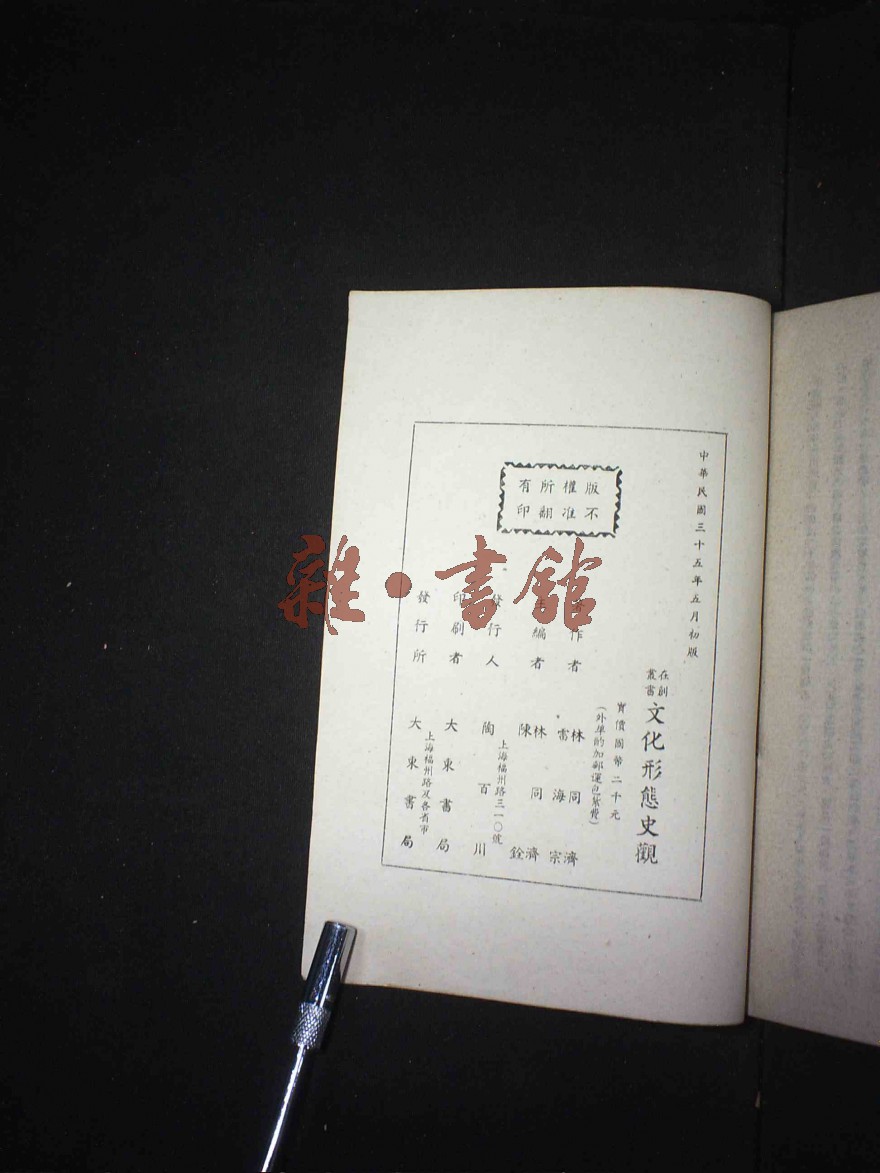 中華民國三十五年五月初版
在創
叢書
文化形態史觀
實價國幣二千元
(外埠酌加郵運包紮費)
版權所有
不准翻印
著作者 林同濟
雷海宗
主編者 林同濟
陳銓
發行人 陶百川
上海福州路三一〇號
印刷者 大東書局
發行所 大東書局
上海福州路及各省市
雜·書館